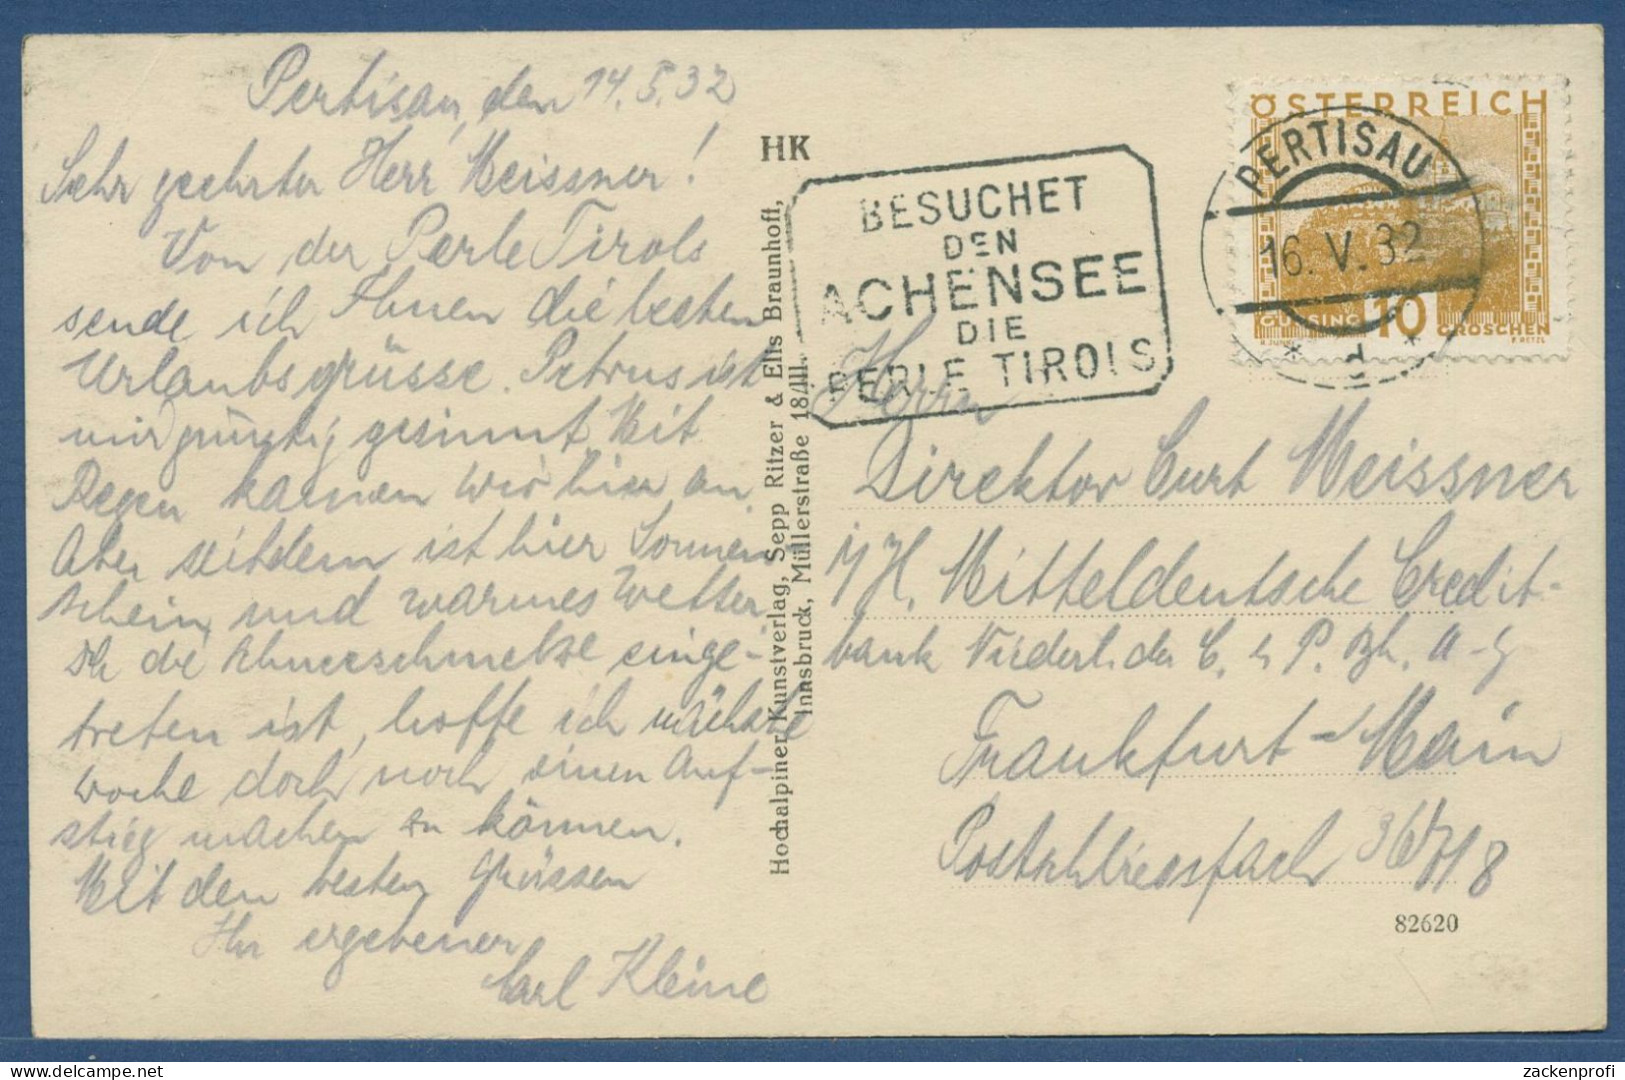 Pertisau, den 14.5.32
Sehr geehrter Herr Meissner!
Von der Perle Tirols
sende ich Ihnen die besten
Urlaubsgrüsse. Petrus ist
mir günstig gesinnt. Mit
Regen kamen wir hier an.
Aber seitdem ist hier Sonnen-
schein und warmes Wetter.
Da die Schneeschmelze einge-
treten ist, hoffe ich nächste
Woche doch noch einen Auf-
stieg machen zu können.
Mit den besten Grüssen
Ihr ergebener
Carl Kleine
HK
Hochalpiner Kunstverlag, Sepp Ritzer & Elis Braunhoff,
Innsbruck, Müllerstraße 18/III.
BESUCHET
DEN
ACHENSEE
DIE
PERLE TIROLS
ÖSTERREICH
GÜSSING 10 GROSCHEN
PERTISAU
16.V.32
* d *
Herrn
Direktor Curt Meissner
i/H. Mitteldeutsche Credit-
bank Niederl. der C. & P. Bk. A-G
Frankfurt-Main
Postschliessfach
82620
zackenprofi